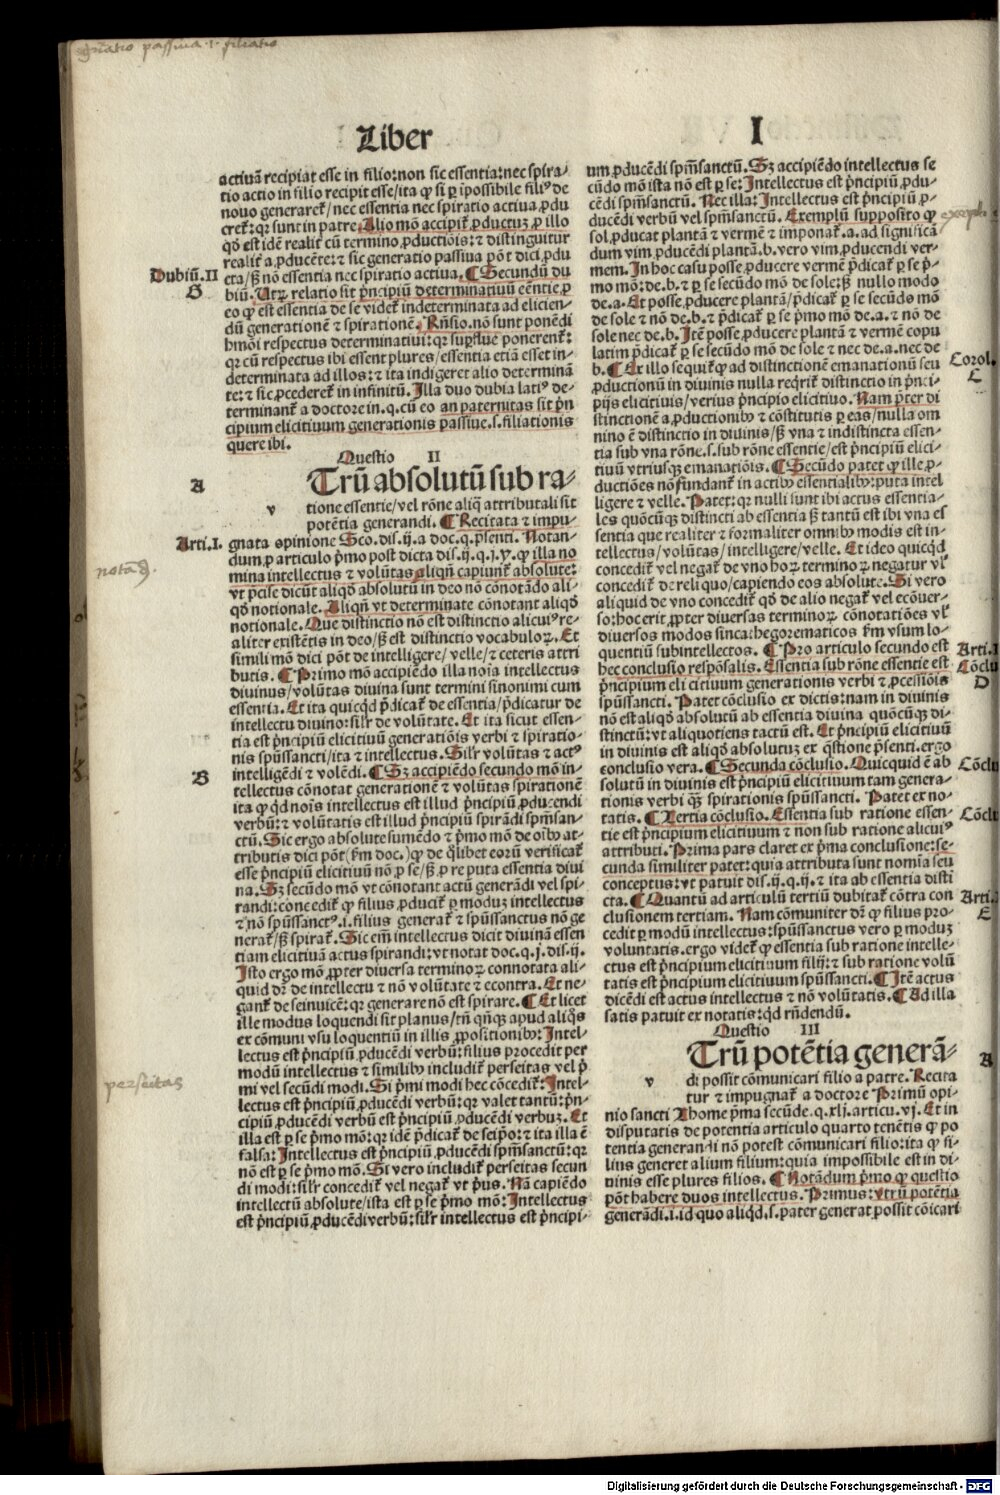 gñatio passiua .i. filiatio
Liber I
actiuã recipiat esse in filio:non sic essentia:nec spira-
tio actio in filio recipit esse/ita ꝙ si ꝑ ipossibile fili⁹ de
nouo generaret̃/nec essentia nec spiratio actiua ꝓdu
cret̃:qꝛ sunt in patre. Alio mõ accipit̃ ꝓductuꝫ ꝓ illo
qd̃ est idẽ realit̃ cũ termino ꝓductiõis:⁊ distinguitur
realit̃ a ꝓducẽte:⁊ sic generatio passiua põt dici ꝓdu
Dubiũ.II
cta/sꝫ nõ essentia nec spiratio actiua. ¶ Secundũ du
G
biũ. Utꝝ relatio sit pͥncipiũ determinatiuũ eẽntie ꝑ
eo ꝙ est essentia de se videt̃ indeterminata ad elicien-
dũ generationẽ ⁊ spirationẽ. Rñsio.nõ sunt ponẽdi
hmõi respectus determinatiui:qꝛ suꝑflue ponerent̃:
qꝛ cũ respectus ibi essent plures/essentia etiã esset in-
determinata ad illos:⁊ ita indigeret alio determinã
te:⁊ sic ꝓcederet̃ in infinitũ. Illa duo dubia lati⁹ de-
terminant̃ a doctore in.q.cũ eo an paternitas sit pͥn
cipium elicitiuum generationis passiue.s.filiationis
quere ibi.
Questio II
A
Trũ absolutũ sub ra-
v
tione essentie/vel rõne aliq̃ attributali sit
potẽtia generandi. ¶ Recitata ⁊ impu-
Arti.I.
gnata opinione Sco.dis.ij.a doc.q.p̃senti. Notan-
dum ꝓ articulo pͥmo post dicta dis.ij.q.j.ꝟ.ꝙ illa no
notãd.
mina intellectus ⁊ volũtas aliqñ capiunt̃ absolute:
vt pͣcise dicũt aliqd̃ absolutũ in deo nõ cõnotãdo ali-
qd̃ notionale. Aliqñ vt determinate cõnotant aliqd̃
notionale. Que distinctio nõ est distinctio alicui⁹ re-
aliter existẽtis in deo/sꝫ est distinctio vocabuloꝝ. Et
simili mõ dici põt de intelligere/ velle/⁊ ceteris attri
butis. ¶ Primo mõ accipiẽdo illa noĩa intellectus
diuinus/volũtas diuina sunt termini sinonimi cum
essentia. Et ita quicqͥd pͥdicat̃ de essentia/pͥdicatur de
intellectu diuino:silr̃ de volũtate. Et ita sicut essen-
tia est pͥncipiũ elicitiuũ generatiõis verbi ⁊ spiratio-
nis spũssancti/ita ⁊ intellectus. Silr̃ volũtas ⁊ act⁹
B
intelligẽdi ⁊ volẽdi. ¶ Sꝫ accipiẽdo secundo mõ in-
tellectus cõnotat generationẽ ⁊ voluntas spirationẽ
ita ꝙ qd̃ noĩs intellectus est illud pͥncipiũ ꝓducendi
verbũ:⁊ volũtatis est illud pͥncipiũ spirãdi spm̃san-
ctũ. Sic ergo absolute sumẽdo ⁊ pͥmo mõ de oĩbꝰ at-
tributis dici põt(ẜm doc.)ꝙ de q̃libet eorũ verificat̃
esse pͥncipiũ elicitiuũ nõ ꝓ se/sꝫ ꝓ re puta essentia diui
na. Sꝫ secũdo mõ vt cõnotant actũ generãdi vel spi-
randi:concedit̃ ꝙ filius ꝓducit̃ ꝑ moduꝫ intellectus
⁊ nõ spũssanct⁹.i.filius generat̃ ⁊ spũssanctus nõ ge
nerat̃/sꝫ spirat̃. Sic em̃ intellectus dicit diuinã essen
tiam elicitiuã actus spirandi:vt notat doc.q.j.dis.ij.
Isto ergo mõ ꝓpter diuersa terminoꝝ connotata ali-
quid dr̃ de intellectu ⁊ nõ volũtate ⁊ econtra. Et ne-
gant̃ de seinuicẽ:qꝛ generare nõ est spirare. ¶ Et licet
ille modus loquendi sit planus/tñ qñqꝫ apud aliq̃s
ex cõmuni vsu loquentiũ in illis ꝓpositionibꝰ: Intel-
lectus est pͥncipiũ ꝓducẽdi verbũ:filius procedit per
modũ intellectus ⁊ similibꝰ includit̃ perseitas vel pͥ
perseitas
mi vel secũdi modi. Si pͥmi modi hec cõcedit̃: Intel-
lectus est pͥncipiũ ꝓducẽdi verbũ:qꝛ valet tantũ:pͥn-
cipiũ ꝓducẽdi verbũ est pͥncipiũ ꝓducẽdi verbuꝫ. Et
illa est ꝑ se pͥmo mõ:qꝛ idẽ pͥdicat̃ de seipͦo:⁊ ita illa ẽ
falsa: Intellectus est pͥncipiũ ꝓducẽdi spm̃sanctũ:qꝛ
nõ est ꝑ se pͥmo mõ. Si vero includit̃ perseitas secun
di modi:silr̃ concedit̃ vel negat̃ vt pͥus. Nã capiẽdo
intellectũ absolute/ista est ꝑ se pͥmo mõ: Intellectus
est pͥncipiũ ꝓducẽdi verbũ:silr̃ intellectus est pͥncipi-
um ꝓducẽdi spm̃sanctũ. Sꝫ accipiẽdo intellectus se
cũdo mõ ista nõ est ꝑ se: Intellectus est pͥncipiũ ꝓdu-
cẽdi spm̃sanctũ. Nec illa: Intellectus est pͥncipiũ ꝓ-
ducẽdi verbũ vel spm̃sanctũ. Exemplũ supposito ꝙ
sol ꝓducat plantã ⁊ vermẽ ⁊ imponat̃.a.ad significã
dum vim ꝓducẽdi plantã.b.vero vim ꝓducendi ver-
mem. In hoc casu posse ꝓducere vermẽ pͥdicat̃ ꝑ se pͥ-
mo mõ:de.b.⁊ ꝑ se secũdo mõ de sole:sꝫ nullo modo
de.a. Et posse ꝓducere plantã/pͥdicat̃ ꝑ se secũdo mõ
de sole ⁊ nõ de.b.⁊ pͥdicat̃ ꝑ se pͥmo mõ de.a.⁊ nõ de
sole nec de.b. Itẽ posse ꝓducere plantã ⁊ vermẽ copu
latim pͥdicat̃ ꝑ se secũdo mõ de sole ⁊ nec de.a.nec de
Corol.
b. ¶ Ex illo sequit̃ ꝙ ad distinctionẽ emanationũ seu
C
ꝓductionũ in diuinis nulla reqͥrit̃ distinctio in pͥnci-
pijs elicitiuis/verius pͥncipio elicitiuo. Nam pͥter di
stinctionẽ a ꝓductionibꝰ ⁊ cõstitutis ꝑ eas/nulla om
nino ẽ distinctio in diuinis/sꝫ vna ⁊ indistincta essen-
tia sub vna rõne.s.sub rõne essentie/est pͥncipiũ elici-
tiuũ vtriusqꝫ emanatiõis. ¶ Secũdo patet ꝙ ille ꝓ-
ductiões nõ fundant̃ in actibꝰ essentialibꝰ:puta intel
ligere ⁊ velle. Patet:qꝛ nulli sunt ibi actus essentia-
les quõcũqꝫ distincti ab essentia sꝫ tantũ est ibi vna es
sentia que realiter ⁊ formaliter omnibꝰ modis est in-
tellectus/volũtas/intelligere/velle. Et ideo quicqͥd
concedit̃ vel negat̃ de vno hoꝝ terminoꝝ negatur vl̃
concedit̃ de reliquo/capiendo eos absolute. Si vero
aliquid de vno concedit̃ qd̃ de alio negat̃ vel ecõuer-
so:hoc erit ꝓpter diuersas terminoꝝ cõnotatiões vl̃
diuersos modos sincathegorematicos ẜm vsum lo-
quentiũ subintellectos. ¶ Pro articulo secundo est
Arti.
hec conclusio respõsalis. Essentia sub rõne essentie est
Cõclu
pͥncipium elicitiuum generationis verbi ⁊ ꝓcessiõis
D
spũssancti. Patet cõclusio ex dictis:nam in diuinis
nõ est aliqd̃ absolutũ ab essentia diuina quõcũqꝫ di-
stinctũ:vt aliquotiens tactũ est. Et pͥncipiũ elicitiuũ
in diuinis est aliqd̃ absolutuꝫ ex q̃stione p̃senti.ergo
conclusio vera. ¶ Secunda cõclusio. Quicquid ẽ ab
Cõclu
solutũ in diuinis est pͥncipiũ elicitiuum tam genera-
tionis verbi qꝫ̃ spirationis spũssancti. Patet ex no-
tatis. ¶ Tertia cõclusio. Essentia sub ratione essen-
Cõclu
tie est pͥncipium elicitiuum ⁊ non sub ratione alicui⁹
attributi. Prima pars claret ex pͥma conclusione:se-
cunda similiter patet:quia attributa sunt nomĩa seu
conceptus:vt patuit dis.ij.q.ij.⁊ ita ab essentia disti
cta. ¶ Quantũ ad articulũ tertiũ dubitat̃ cõtra con
Arti.
clusionem tertiam. Nam cõmuniter dr̃ ꝙ filius pro-
E
cedit ꝑ modũ intellectus:spũssanctus vero ꝑ moduꝫ
voluntatis.ergo videt̃ ꝙ essentia sub ratione intelle-
ctus est pͥncipium elicitiuum filij:⁊ sub ratione volũ
tatis est pͥncipium elicitiuum spũssancti. ¶ Itẽ actus
dicẽdi est actus intellectus ⁊ nõ volũtatis. ¶ Ad illa
satis patuit ex notatis:qd̃ rñdendũ.
Questio III
Trũ potẽtia generã-
A
v
di possit cõmunicari filio a patre. Recita
tur ⁊ impugnat̃ a doctore Primũ opi-
nio sancti Thome pͥma secũde.q.xlj.articu.vj. Et in
disputatis de potentia articulo quarto tenẽtis ꝙ po
tentia generandi nõ potest cõmunicari filio:ita ꝙ fi-
lius generet alium filium:quia impossibile est in di-
uinis esse plures filios. ¶ Notãdum pͥmo ꝙ questio
põt habere duos intellectus. Primus:vtrũ potẽtia
generãdi.i.id quo aliqd̃.s.pater generat ꝓpossit cõicari
Digitalisierung gefördert durch die Deutsche Forschungsgemeinschaft - DFG